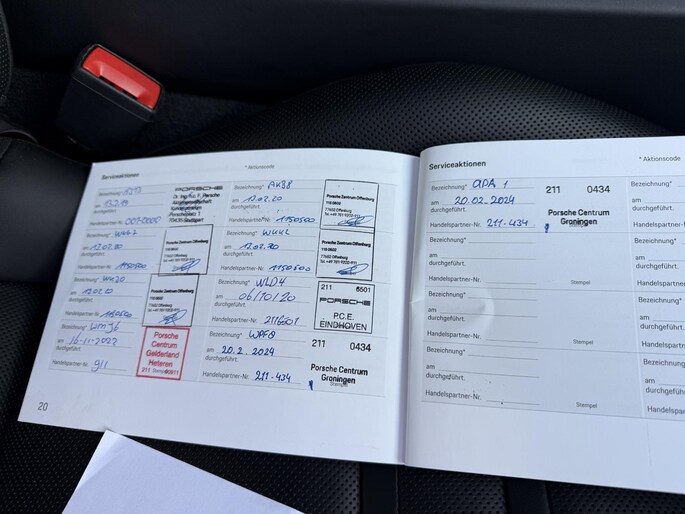 Serviceaktionen
* Aktionscode
Bezeichnung*
am 13.2.19
durchgeführt.
Handelspartner-Nr.
PORSCHE
Dr. Ing. h.c. F. Porsche
Aktiengesellschaft
Porscheplatz 1
70435 Stuttgart
Bezeichnung* AKB8
am 12.02.20
durchgeführt.
Handelspartner-Nr. 1150500
Porsche Zentrum Offenburg
77652 Offenburg
Stempel
Bezeichnung*
am 12.02.20
durchgeführt.
Handelspartner-Nr. 1150500
Porsche Zentrum Offenburg
77652 Offenburg
Bezeichnung*
am 12.02.20
durchgeführt.
Handelspartner-Nr. 1150500
Porsche Zentrum Offenburg
77652 Offenburg
Bezeichnung*
am 12.02.20
durchgeführt.
Handelspartner-Nr. 1150500
Porsche Zentrum Offenburg
77652 Offenburg
Bezeichnung* WLD4
am 06/10/20
durchgeführt.
Handelspartner-Nr. 2116501
211 6501
PORSCHE
P.C.E.
EINDHOVEN
Bezeichnung*
am 16-11-2022
durchgeführt.
Handelspartner-Nr. 911
Porsche
Centrum
Gelderland
Heteren
211
Stempel
Bezeichnung* WPF0
am 20.2.2024
durchgeführt.
Handelspartner-Nr. 211-434
211 0434
Porsche Centrum
Groningen
Stempel
20
Serviceaktionen
* Aktionscode
Bezeichnung* APA 1
am 20.02.2024
durchgeführt.
Handelspartner-Nr. 211-434
211 0434
Porsche Centrum
Groningen
Bezeichnung*
am
durchgeführt.
Handelspartner-Nr.
Stempel
Bezeichnung*
am
durchgeführt.
Handelspartner-Nr.
Stempel
Bezeichnung*
am
durchgeführt.
Handelspartner-Nr.
Stempel
Bezeichnung*
am
durchgeführt.
Handelspartner-Nr.
Bezeichnung*
am
durchgeführt.
Handelspartner-Nr.
Bezeichnung*
am
durchgeführt.
Handelspartner-Nr.
Bezeichnung*
am
durchgeführt.
Handelspartner-Nr.